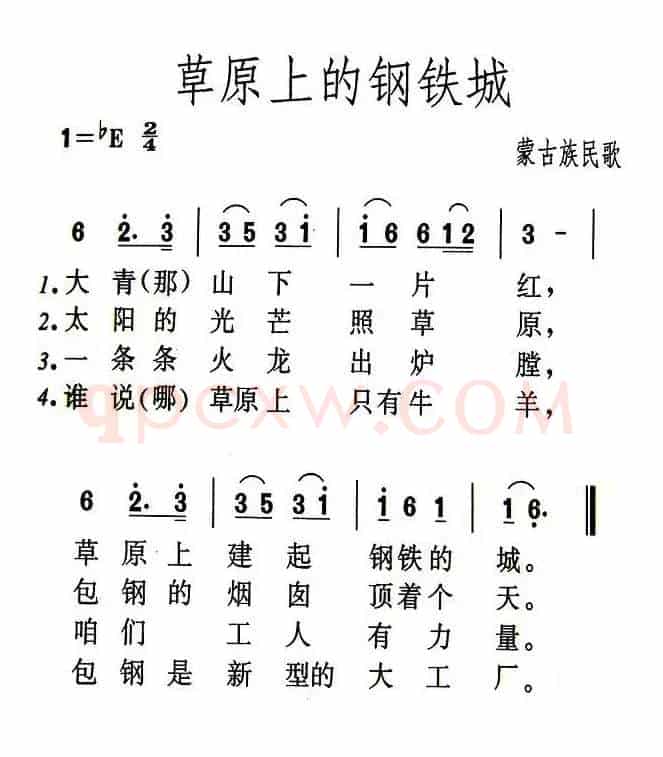 草原上的钢铁城
1=♭E 2/4
蒙古族民歌
6 2̇. 3̇ | 3 5 3 1̇ | 1̇ 6 6 1 2 | 3 - |
1.大 青(那) 山 下 一 片 红,
2.太 阳 的 光 芒 照 草 原,
3.一 条 条 火 龙 出 炉 膛,
4.谁 说(哪) 草原上 只有牛 羊,
qpcxw.COM
6 2̇. 3̇ | 3 5 3 1̇ | 1̇ 6 1 | 1 6̣. ‖
草 原 上 建 起 钢铁的 城。
包 钢 的 烟 囱 顶着个 天。
咱 们 工 人 有 力 量。
包 钢 是 新 型的 大 工 厂。